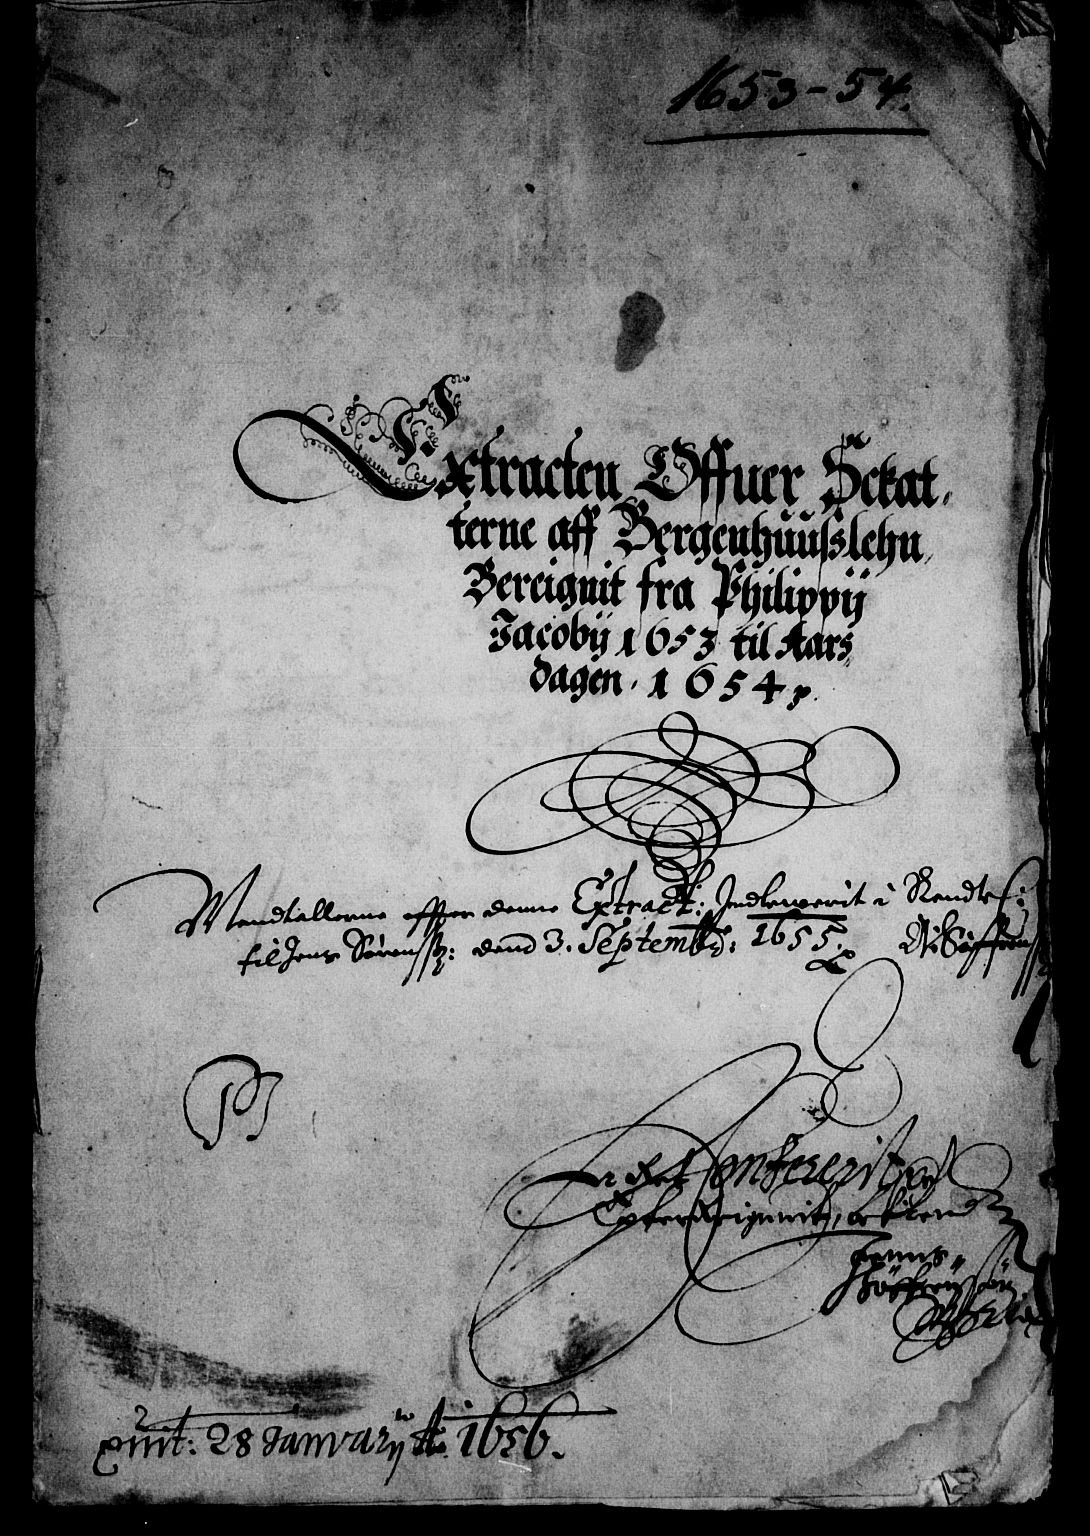 1653-54.
Extracten Offuer Schat,
terne aff Bergenhuusslehn,
Bereignit fra Philippij
Jacobij 1653 til Aars
dagen. 1654
Mandtallerne effter denne Extract: Indleuverit i Rendte
til Jens Sørenss: dend 3. Septemb: 1655.
PJ
Confererit
Efterreignit,
Jenns
qvit: 28 Januarij Ao. 1656.